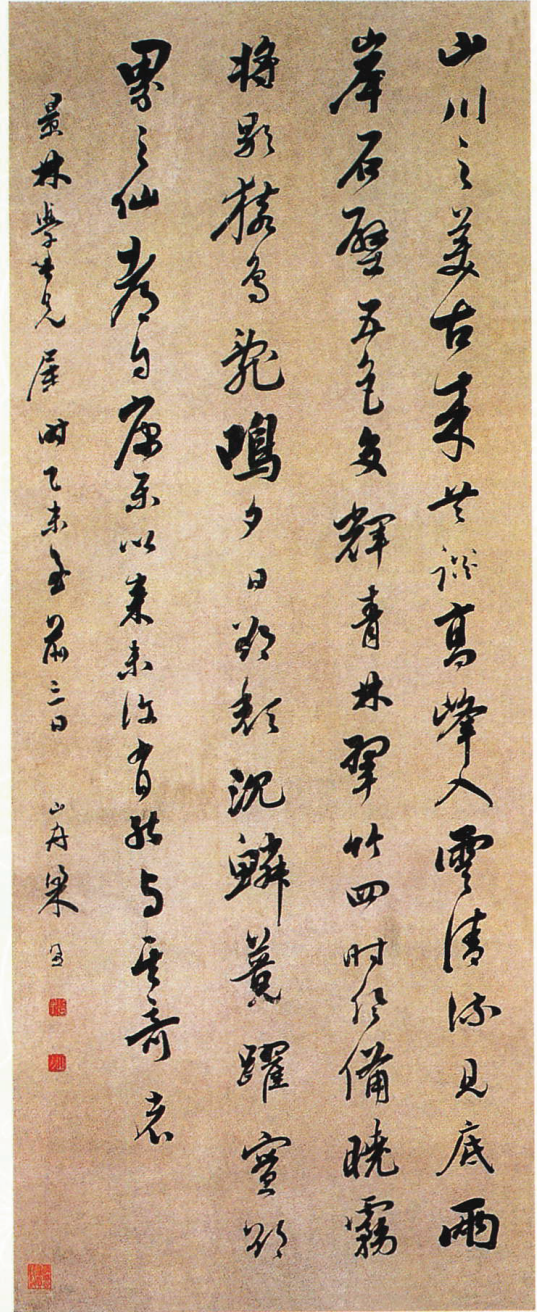 山川之美古來共談高峰入雲清流見底兩
岸石壁五色交輝青林翠竹四时俱備曉霧
將歇猿鳥亂鳴夕日欲頹沈鱗競躍實欲
界之仙都自康樂以來未復有能与其奇者
景林學士兄屬 时乙未至前三日 山舟梁同書